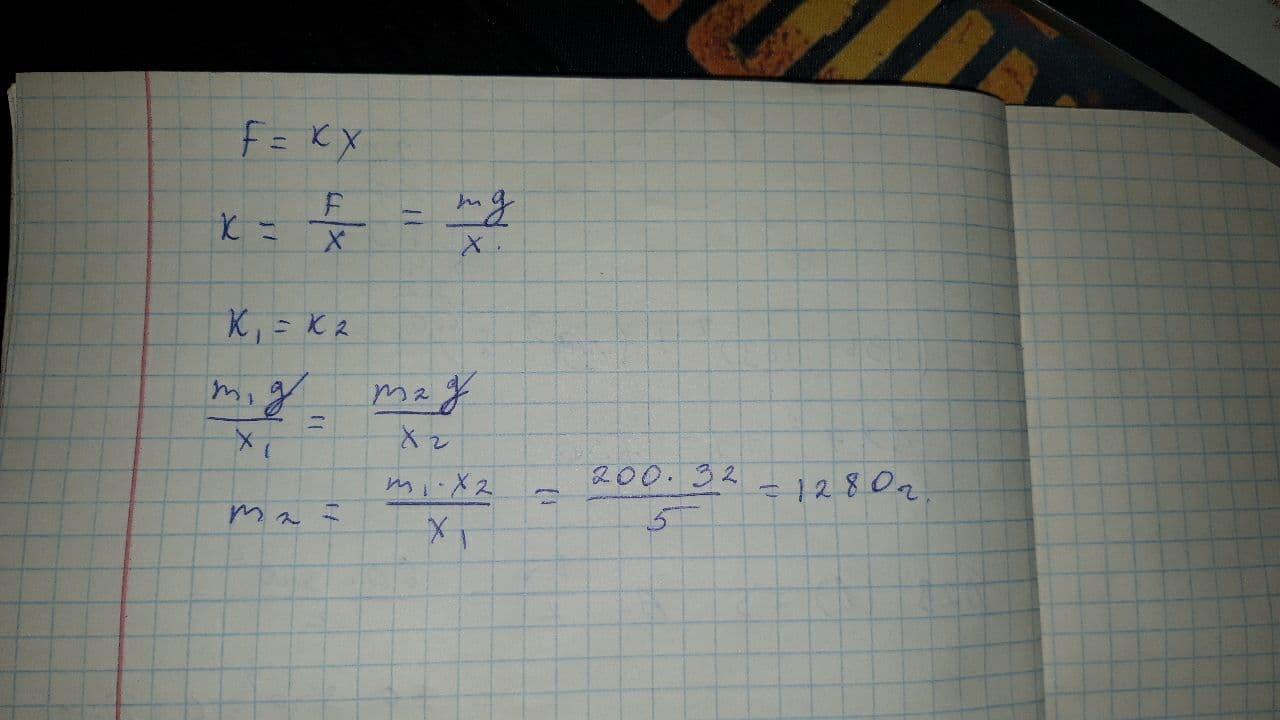 F = kx
k = F/x = mg/x.
k₁ = k₂
m₁g/x₁ = m₂g/x₂
m₂ = m₁·x₂/x₁ = 200·32/5 = 1280г.